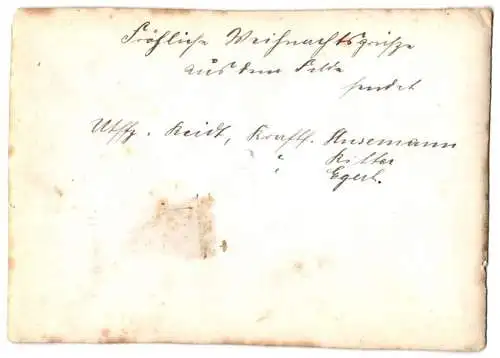 Fröhliche Weihnachtsgrüsze
aus dem Felde
sendet
Utffz. Reidt, Kraftf. Ansemann
" Ritter
" Egerl.